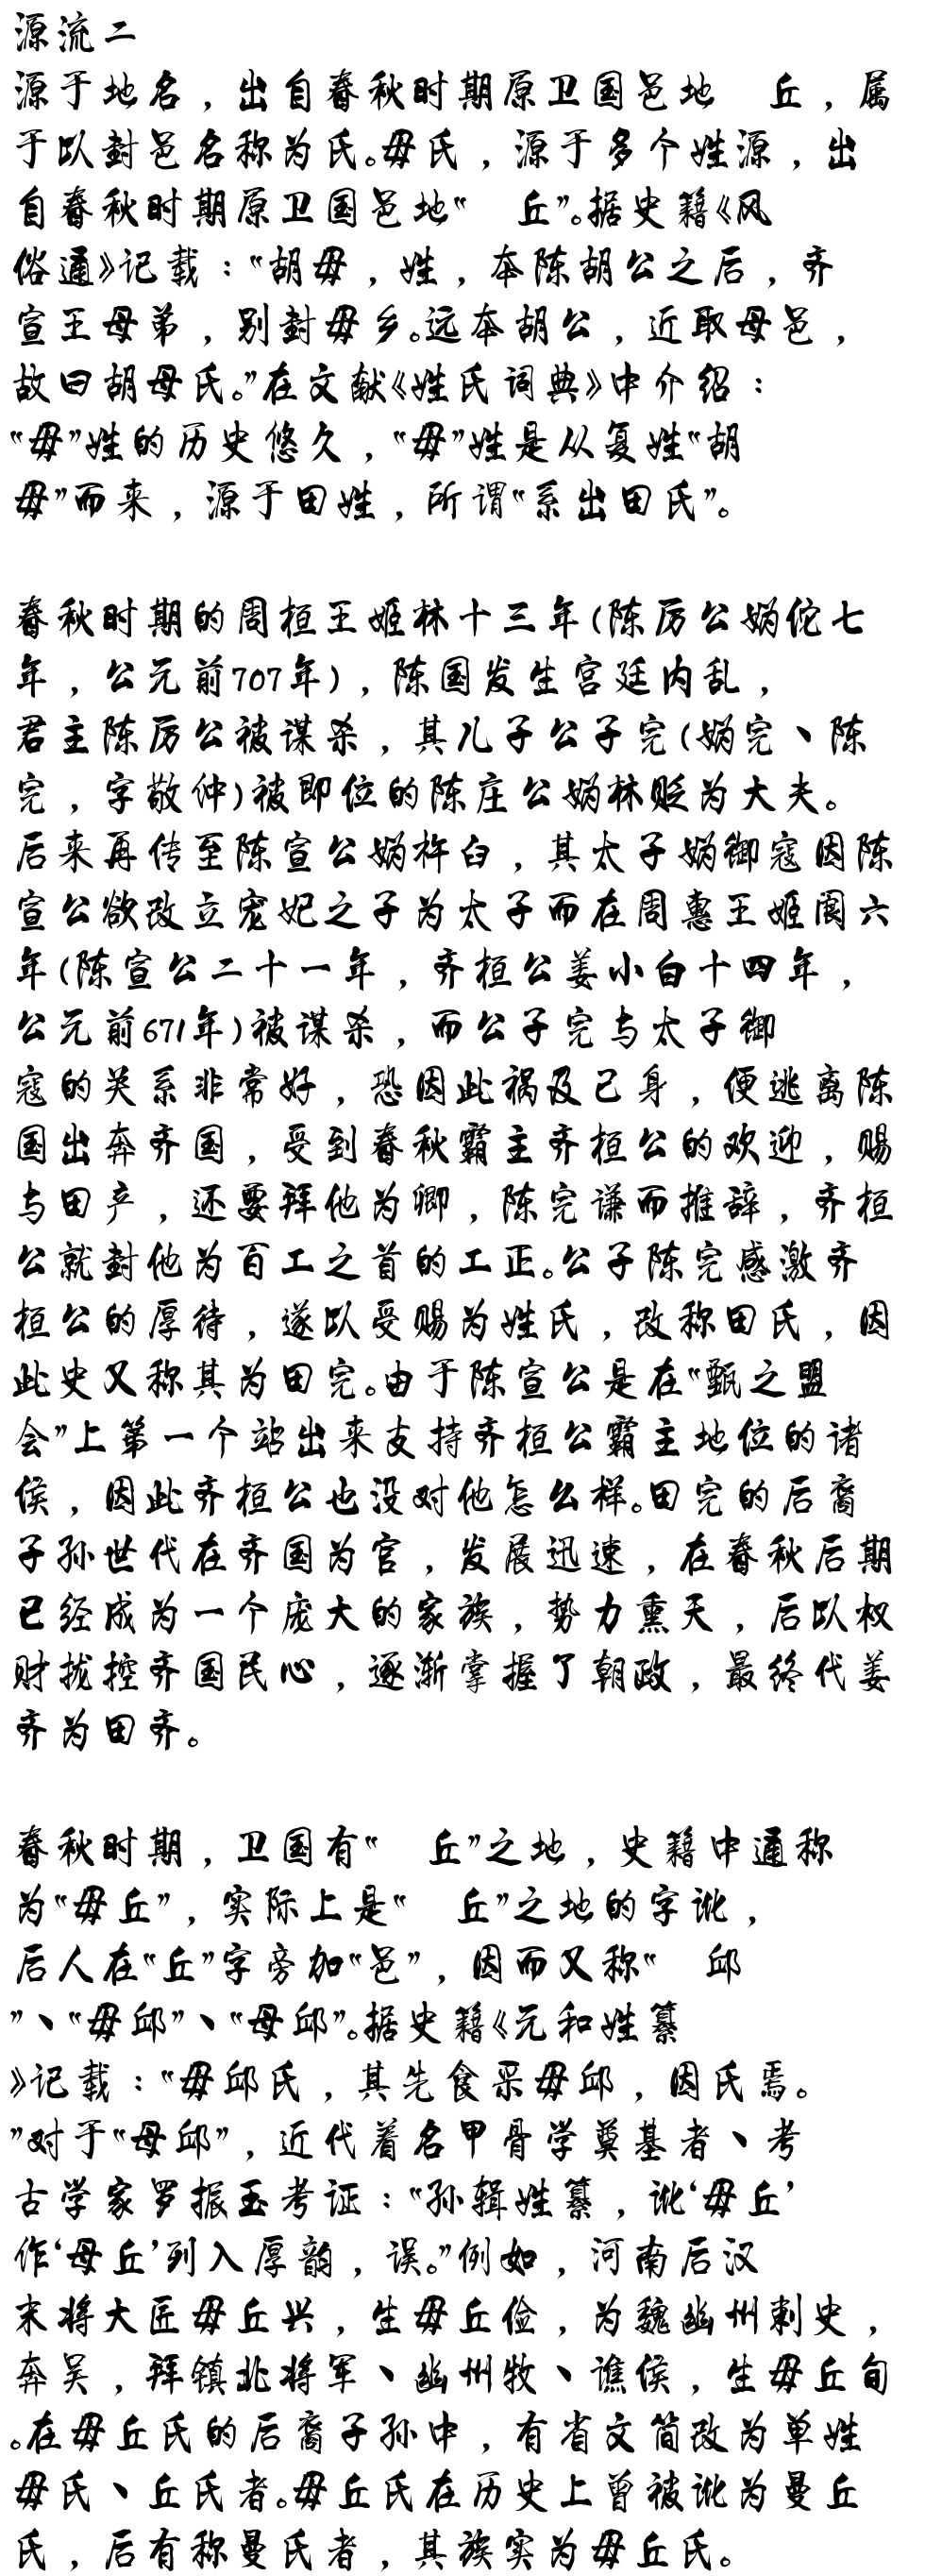 源流二
源于地名，出自春秋时期原卫国邑地　丘，属
于以封邑名称为氏。毋氏，源于多个姓源，出
自春秋时期原卫国邑地“　丘”。据史籍《风
俗通》记载：“胡毋，姓，本陈胡公之后，齐
宣王母弟，别封毋乡。远本胡公，近取母邑，
故曰胡母氏。”在文献《姓氏词典》中介绍：
“毋”姓的历史悠久，“毋”姓是从复姓“胡
毋”而来，源于田姓，所谓“系出田氏”。
春秋时期的周桓王姬林十三年(陈厉公妫佗七
年，公元前707年)，陈国发生宫廷内乱，
君主陈厉公被谋杀，其儿子公子完(妫完、陈
完，字敬仲)被即位的陈庄公妫林贬为大夫。
后来再传至陈宣公妫杵臼，其太子妫御寇因陈
宣公欲改立宠妃之子为太子而在周惠王姬阆六
年(陈宣公二十一年，齐桓公姜小白十四年，
公元前671年)被谋杀，而公子完与太子御
寇的关系非常好，恐因此祸及己身，便逃离陈
国出奔齐国，受到春秋霸主齐桓公的欢迎，赐
与田产，还要拜他为卿，陈完谦而推辞，齐桓
公就封他为百工之首的工正。公子陈完感激齐
桓公的厚待，遂以受赐为姓氏，改称田氏，因
此史又称其为田完。由于陈宣公是在“甄之盟
会”上第一个站出来支持齐桓公霸主地位的诸
侯，因此齐桓公也没对他怎么样。田完的后裔
子孙世代在齐国为官，发展迅速，在春秋后期
已经成为一个庞大的家族，势力熏天，后以权
财拢控齐国民心，逐渐掌握了朝政，最终代姜
齐为田齐。
春秋时期，卫国有“　丘”之地，史籍中通称
为“毋丘”，实际上是“　丘”之地的字讹，
后人在“丘”字旁加“邑”，因而又称“　邱
”、“毋邱”、“母邱”。据史籍《元和姓纂
》记载：“毋邱氏，其先食采毋邱，因氏焉。
”对于“母邱”，近代着名甲骨学奠基者、考
古学家罗振玉考证：“孙辑姓纂，讹‘毋丘’
作‘母丘’列入厚韵，误。”例如，河南后汉
末将大匠毋丘兴，生毋丘俭，为魏幽州刺史，
奔吴，拜镇北将军、幽州牧、谯侯，生毋丘旬
。在毋丘氏的后裔子孙中，有省文简改为单姓
毋氏、丘氏者。毋丘氏在历史上曾被讹为曼丘
氏，后有称曼氏者，其族实为毋丘氏。